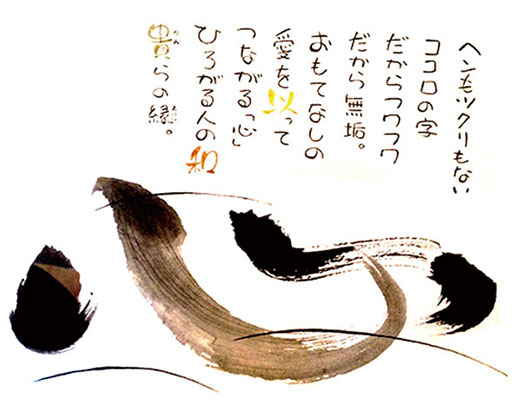 ヘンもツクリもない
ココロの字
だからフワフワ
だから無垢。
おもてなしの
愛を以って
つながる「心」
ひろがる人の和
らの
心